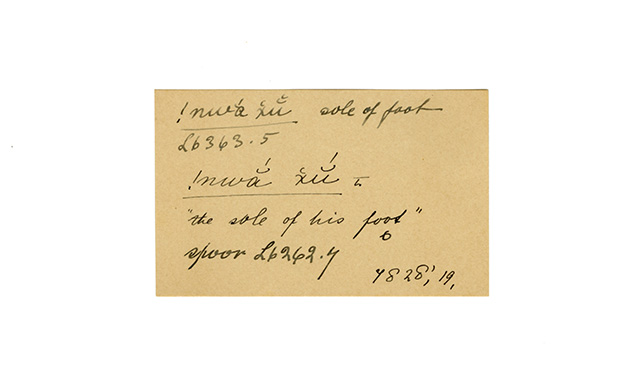 !nwá žŭ sole of foot
L6363.5
!nwắ žŭ́
"the sole of his foot"
spoor L6262.7